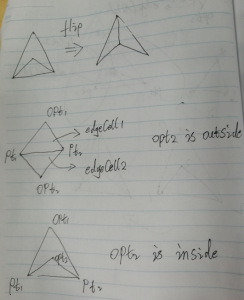 flip
⇒
opt1
edgeCell1
Pt1
Pt2
opt2 is outside
edgeCell2
opt2
opt1
opt2
opt2 is inside
Pt1
Pt2